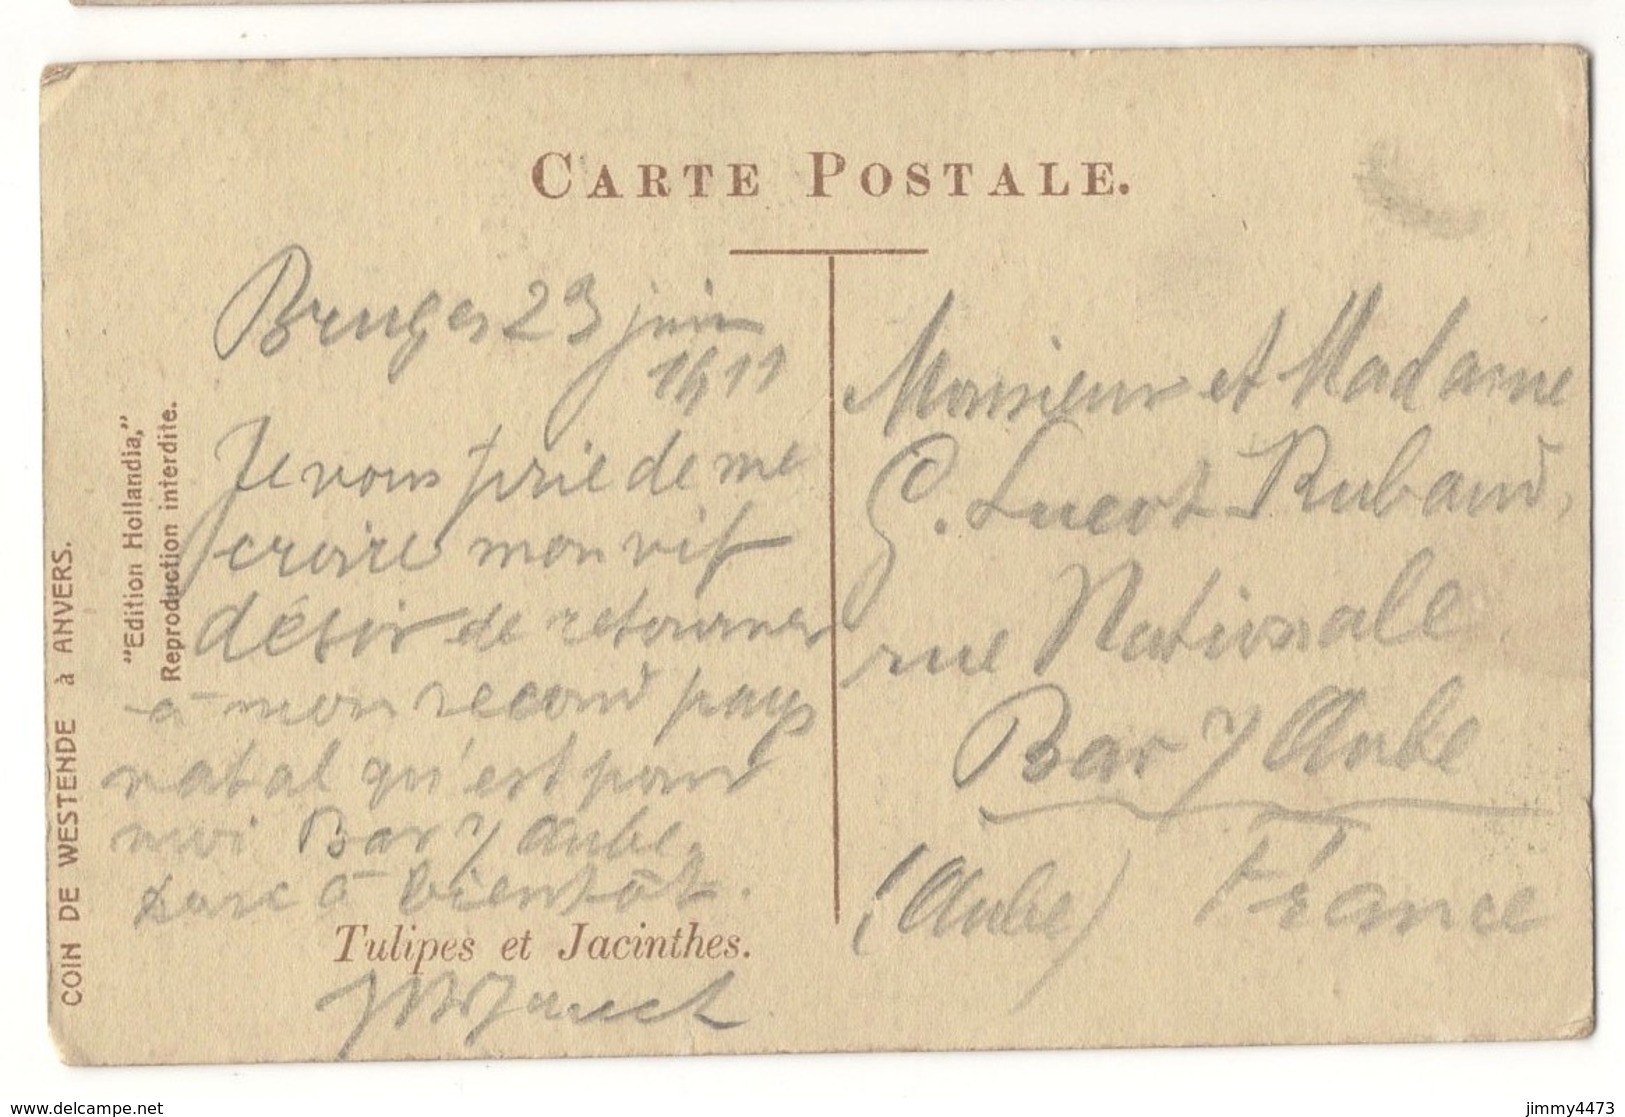 CARTE POSTALE.
Bruges 23 juin
Je vous prie de me
croire mon vif
désir de retourner
à mon second pays
natal qu'est pour
moi Bar s/ Aube
donc à bientôt.
Tulipes et Jacinthes.
Monsieur et Madame
rue Nationale
Bar s/ Aube
(Aube) France
"Edition Hollandia,"
Reproduction interdite.
COIN DE WESTENDE à ANVERS.
www.delcampe.net
jimmy4473